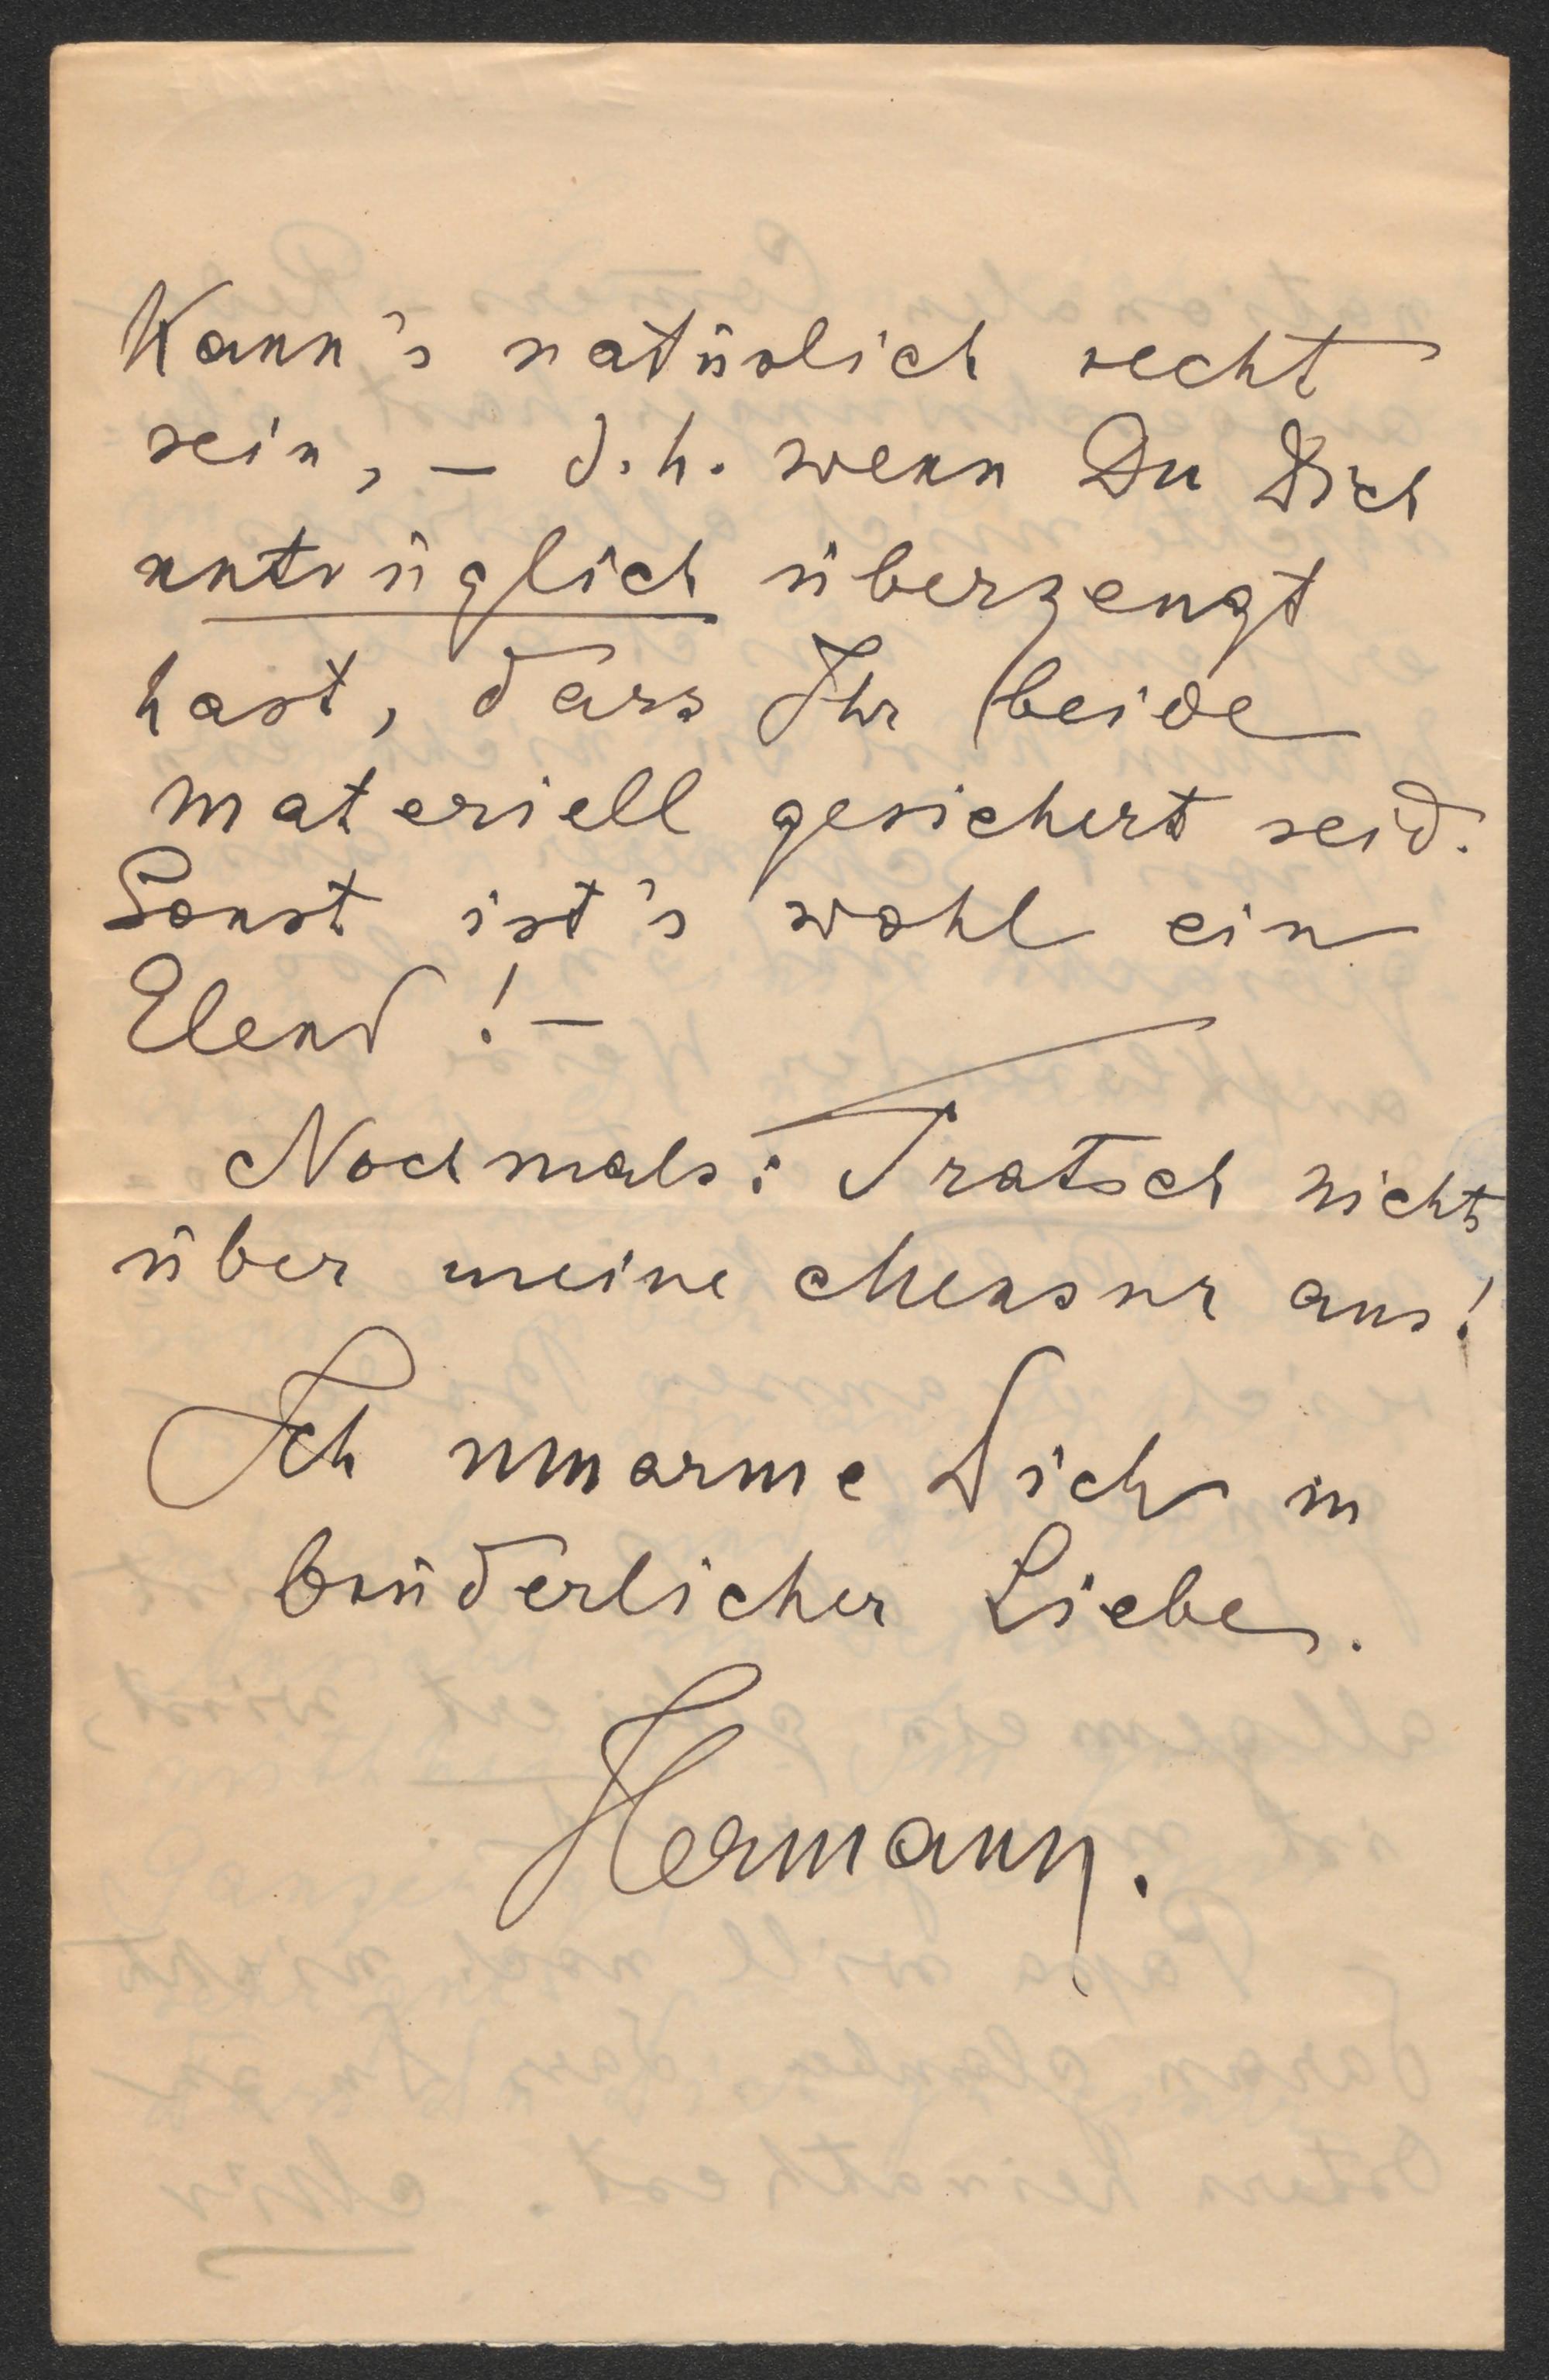 Kann's natürlich recht
sein, – d. h. wenn Du Dich
untrüglich überzeugt
hast, dass Ihr beide
materiell gesichert seid.
Sonst ist's wohl ein
Elend! –
Nochmals: Tratsch nichts
über meine Mensur aus!
Ich umarme Dich in
brüderlicher Liebe.
Hermann.